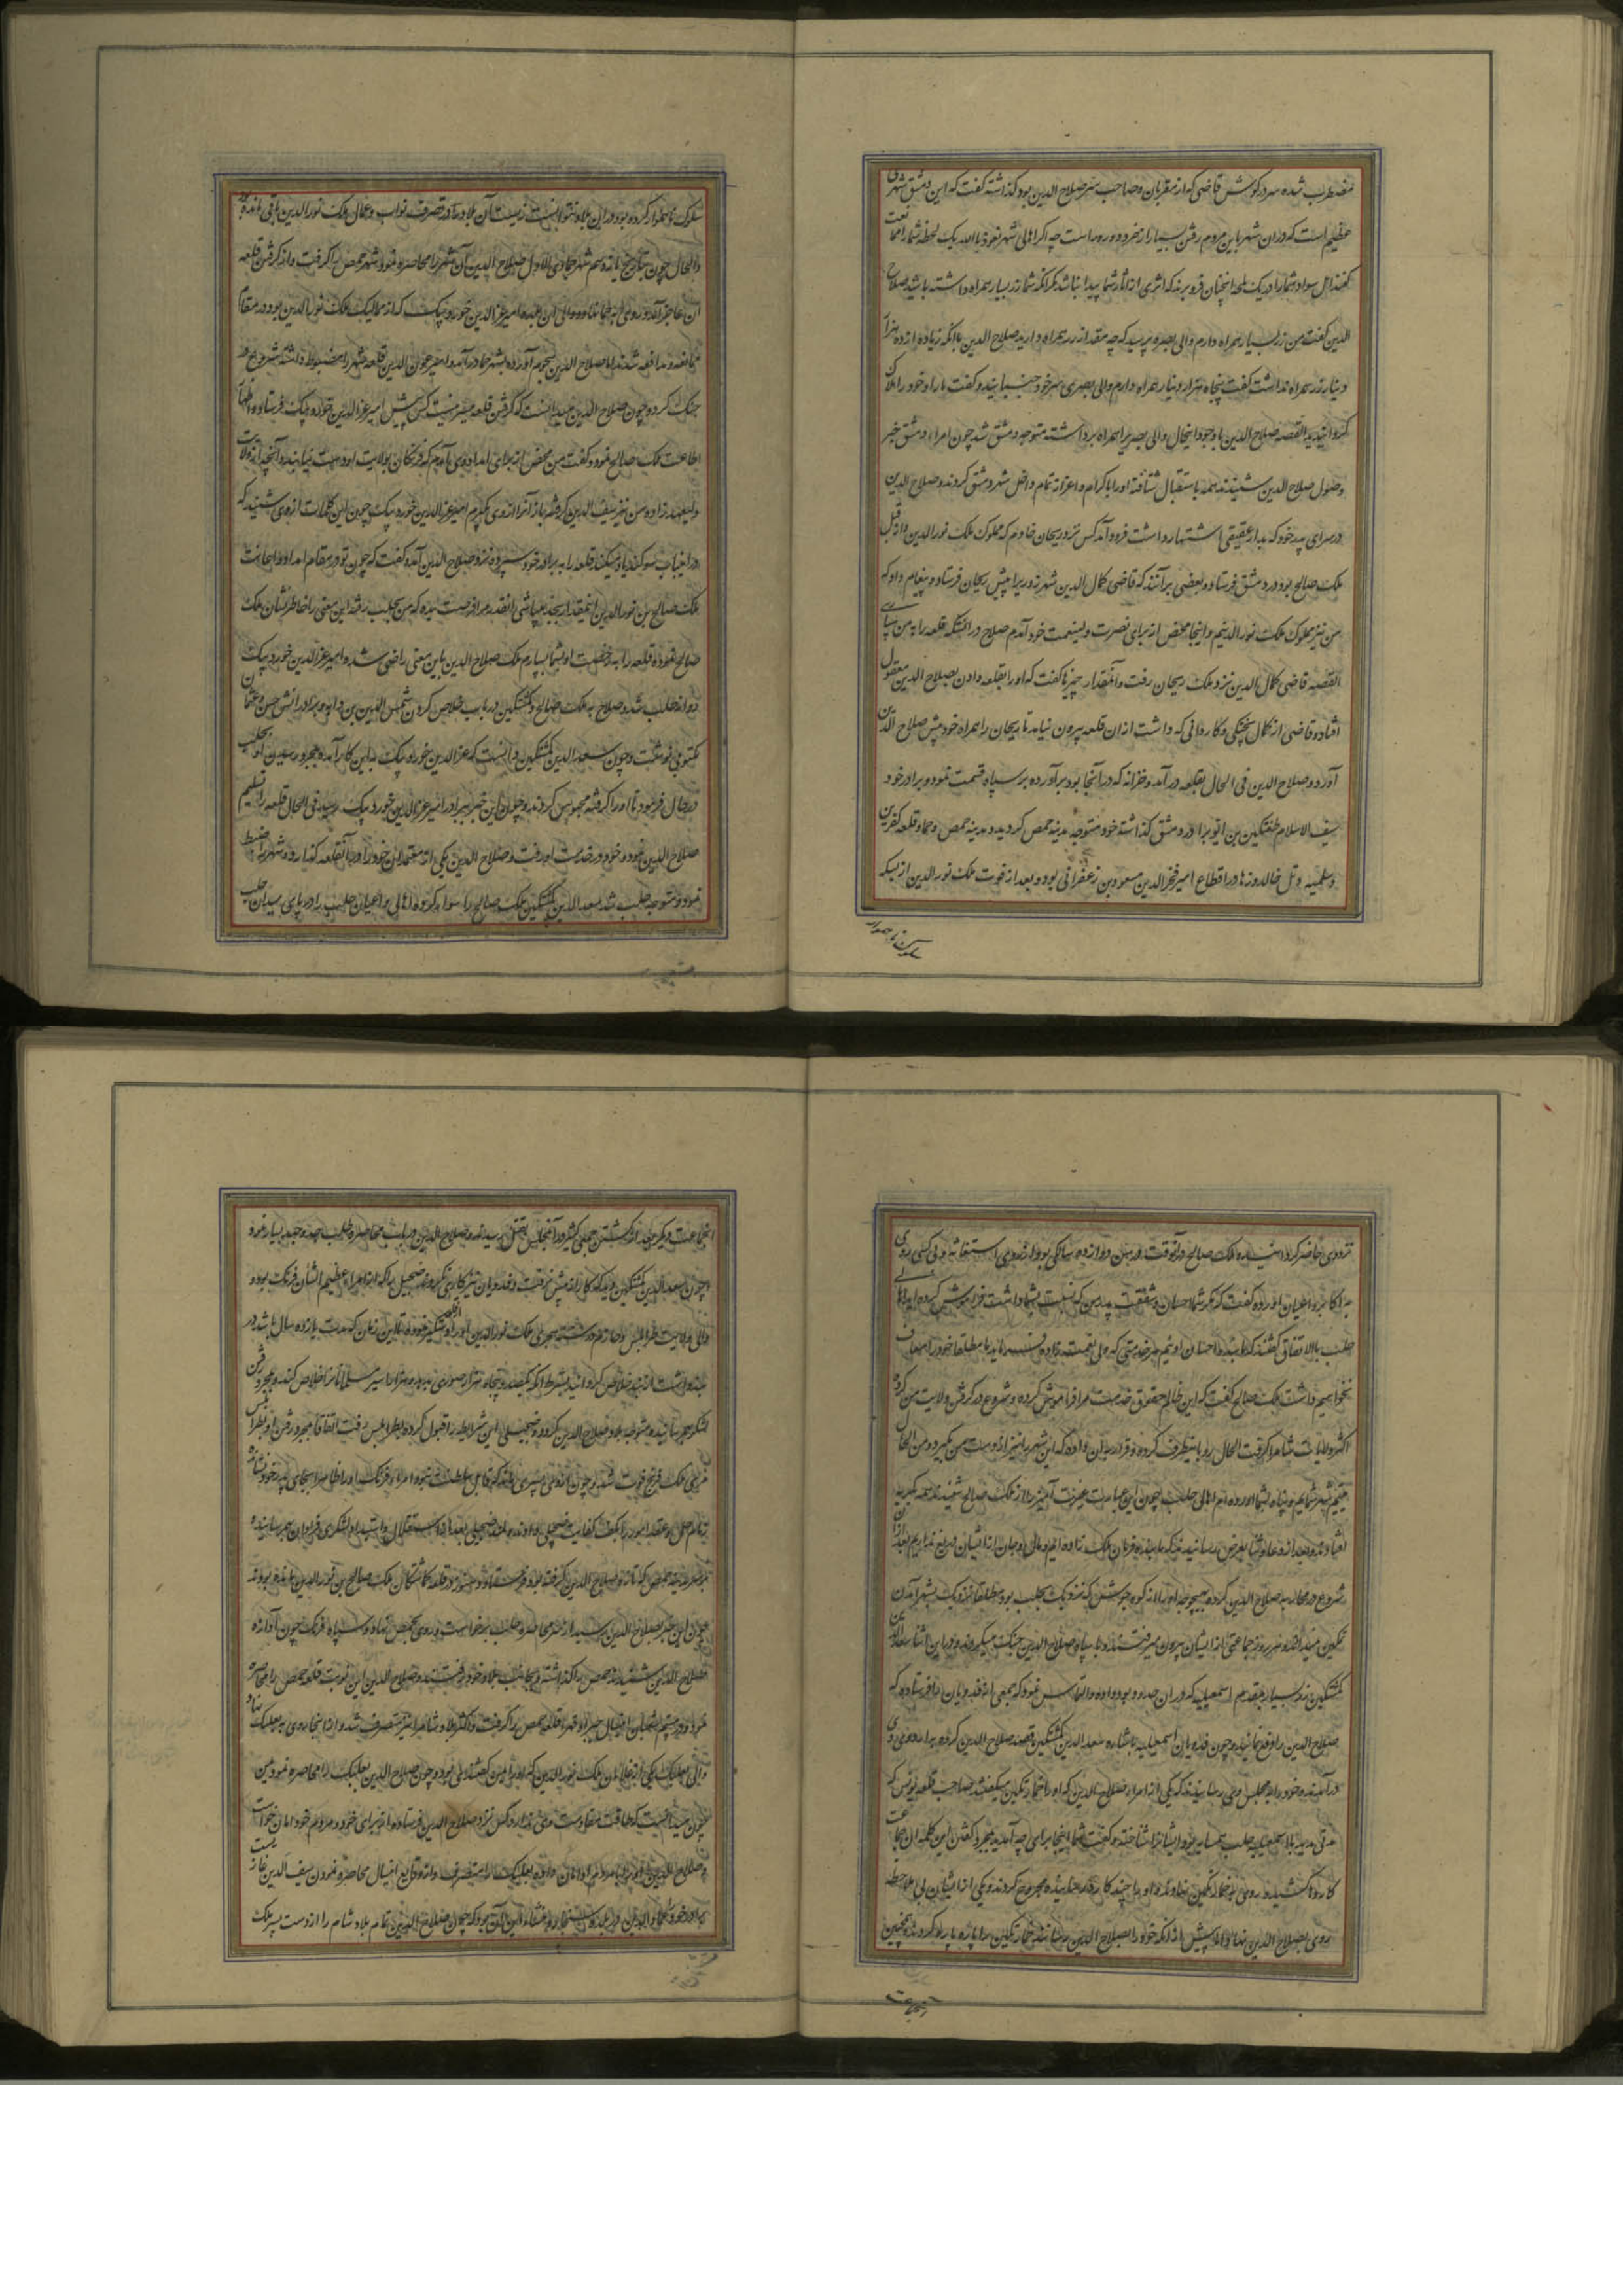 مضطرب شده سر در کوش قاضی که از مقربان و صاحب سر صلاح الدین بود کذاشته گفت که این دمشق شهری
عظیم است که در ان شهر باین مردم رفتن بسیار از خرد دور است چه اکر اهالی شهر نعوذ باالله یک لحظه شما را ممانعت
کنند اهل سواد شما را در یک لمحه انچنان فرو برند که اثری از اثار شما پیدا نباشد مکر انکه شما زر بسیار همراه داشته باشید صلاح
الدین گفت من زر بسیار همراه دارم والی بصره پرسید که چه مقدار زر همراه دارید صلاح الدین با انکه زیاده از ده هزار
دینار زر همراه نداشت گفت پنجاه هزار دینار همراه دارم والی بصری سر خود جنبانید و گفت ما را و خود را هلاک
کردانیدید القصه صلاح الدین با وجود اینحال والی بصری را همراه برداشته متوجه دمشق شد چون امراء دمشق خبر
وصول صلاح الدین شنیدند همه باستقبال شتافته او را باکرام و اعزاز تمام داخل شهر دمشق کردند و صلاح الدین
در سرای پدر خود که بدار عقیقی اشتهار داشت فرود آمد کس نزد ریحان خادم که مملوک ملک نور الدین و از قبل
ملک صالح بود در دمشق فرستاده و بعضی برآنند که قاضی کمال الدین شهرزوری را پیش ریحان فرستاده پیغام داد که
من نیز مملوک ملک نور الدینم و اینجا محض از برای نصرت ولینعمت خود آمدم صلاح در انستکه قلعه را به من سپاری
القصه قاضی کمال الدین نزد ملک ریحان رفت و آنمقدار چیزها گفت که او را بقلعه دادن بصلاح الدین معقول
افتاد و قاضی از کمال پختکی و کاردانی که داشت از ان قلعه بیرون نیامد تا ریحان را همراه خود پیش صلاح الدین
آورد و صلاح الدین فی الحال بقلعه در آمد و خزانه که در آنجا بود برآورده بر سپاه قسمت نمود و برادر خود
سیف الاسلام طغتکین بن ایوب را در دمشق کذاشته خود متوجه مدینه حمص کردید و مدینه حمص و حما و قلعه کفرین
و سلمیه و تل خالد و رها در اقطاع امیر فخر الدین مسعود بن زعفرانی بود و بعد از فوت ملک نور الدین از بسکه
سلوک ناهموار
سلوک ناهموار کرده بود در ان بلاد نتوانست زیست آن بلاد در تصرف نواب و عمال ملک نور الدین باقی مانده بود
والحال چون بتاریخ یازدهم شهر جمادی الاول صلاح الدین آن شهر را محاصره نمود شهر حمص را کرفت و از کرفتن قلعه
ان عاجز آمد روی به حما نهاد و والی ان بلده امیر عز الدین خوردیک که از ممالیک ملک نور الدین بود در مقام
ممانعه و مدافعه شد اما صلاح الدین هجوم آورده بشهر حما در آمد و امیر عز الدین قلعه شهر را مضبوط داشته شروع در
جنک کرد و چون صلاح الدین میدانست که کرفتن قلعه میسر نیست کس پیش امیر عز الدین خوردیک فرستاد و اظهار
اطاعت ملک صالح نمود و گفت من محض از برای امداد وی آمدم که فرنکان بولایت او دست نیابند و آنچه از ولایت
ولیعهد زاده من نیز سیف الدین کرفته باز آنرا از وی بکیرم امیر عز الدین خوردیک چون این کلمات از وی شنید که
در اینباب سوکند یاد میکند قلعه را به برادر خود سپرده نزد صلاح الدین آمد و گفت که چون تو در مقام امداد و اعانت
ملک صالح بن نور الدین اینمقدار بجد میباشی انقدر مرا فرصت بده که من بحلب رفته این معنی را خاطر نشان ملک
صالح نموده قلعه را به رخصت او بشما بسپارم ملک صلاح الدین باین معنی راضی شده امیر عز الدین خوردیک
روانه حلب شد و صلاح به ملک صالح و کمشتکین در باب خلاص کردن شمس الدین بن دایه و برادرانش حسن و عثمان
مکتوبی نوشت و چون سعد الدین کمشتکین دانست که عز الدین خوردیک باین کار آمد بمجرد رسیدن او بحلب
در حال فرمود تا او را کرفته محبوس کردند و چون این خبر ببرادر امیر عز الدین خوردیک رسید فی الحال قلعه را تسلیم
صلاح الدین نمود و خود در خدمت او رفت و صلاح الدین یکی از معتمدان خود را در آنقلعه کذارد و شهر را ضبط
نمود و متوجه حلب شد سعد الدین کمشتکین ملک صالح را سوار کرده اهالی و اعیان حلب را در پای میدان حلب
نزد وی حاضر کردانیده ملک صالح در آنوقت در سن دوازده سالکی بود از روی استغاثه و بی کسی روی
به اکابر و اعیان آورده گفت که مکر شما احسان و شفقت پدر من که نسبت بشما داشت فراموش کرده اید اهالی
حلب باالاتفاق گفتند که ما بنده احسان اوئیم هر خدمتی که ولی نعمت زاده فرماید ما مطلقا خود را معاف
نخواهیم داشت ملک صالح گفت که این ظالم حقوق خدمت مرا فراموش کرده و شروع در کرفتن ولایت من کرد
اکثر ولایات شام را کرفت الحال رو باینطرف کرده و قرار بدان داده که این شهر را نیز از دست من بکیرد و من الحال
یتیم شهر شمایم و پناه بشما آورده ام اهالی حلب چون این عبارت غیرت آمیز را از ملک صالح شنیدند همه بکریه
افتادند و بعد از دعا و ثنا بعرض رسانیدند که ما بنده فرمان ملک زاده ایم و مال و جان از ایشان دریغ نداریم بعد از ان
شروع در محاربه صلاح الدین کرده بهیچوجه او را از کوه جوشن که نزدیک بحلب بود مطلقا نزدیک بشهر آمدن
تمکین میندادند و هر روز جماعتی از ایشان بیرون میرفتند و با سپاه صلاح الدین جنک میکردند و در این اثنا سعد الدین
کمشتکین زر بسیار بمقدم اسمعیلیه که در ان حدود بود داده و التماس نمود که جمعی از فدویان را فرستاده که
صلاح الدین را دفع نمایند و چون فدویان اسمعیلیه باشاره سعد الدین کمشتکین قصد صلاح الدین کرده به اردوی وی
در آمدند و خود را به مجلس وی رسانیدند که یکی از امراء صلاح الدین که او را خمارتکین میکفتند صاحب قلعه بوقبیس که
مدتی مدید با اسمعیلیه حلب همسایه بود ایشانرا شناخته و گفت شما اینجا برای چه آمدید بمجرد گفتن این کلمه ان جماعت
کاردها کشیده روی به خمارتکین نهادند و او را چند کارد رسانیده مجروح کردند و یکی از ایشان بی ملاحظه
روی بصلاح الدین نهاد اما پیش از انکه خود را بصلاح الدین رساند خمارتکین را پاره پاره کردند و همچنین
انجماعت
انجماعت دیکر بعد از کشتن جمعی کثیر در آنمجلس بقتل رسیدند و صلاح الدین در باب محاصره حلب جد و جهد بسیار نمود
و چون سعد الدین کمشتکین دید که کار از پیش نرفت و فدویان نیز کاری نکردند ضجیل را که از امراء عظیم الشان فرنک بود و
والی ولایت طرابلس و حازم در سنه هجری ملک نور الدین او را دستکیر نموده تا این زمان که مدت یازده سال باشد در
بند داشت از بند خلاص کردانید بشرط انکه یکصد و پنجاه هزار صوری زر بدهد و هزار اسیر مسلمانرا خلاص کند و بمجرد رفتن
لشکر بهم رسانیده متوجه بلاد صلاح الدین کردد ضجیل این شرایط را قبول کرده بطرابلس رفت اتفاقا بمجرد رفتن او بطرابلس
مری ملک فرنج فوت شد و چون از وی پسری نماند که قابل سلطنت شود امراء فرنک او را ظاهرا بجای پدر خود نشانده
زمام حل و عقد امور را بکف کفایت ضجیل دادند و ضجیل بعد از استقلال و استبداد لشکری فراوان بهم رسانیده
چون این خبر بصلاح الدین رسید از سر محاصره حلب برخاست و روی بحمص نهاد و سپاه فرنک چون آوازه
صلاح الدین شنیدند حمص را کذاشته و بجانب بلاد خود رفتند و صلاح الدین این نوبت قلعه حمص را محاصره
والی بعلبک یکی از غلامان ملک نور الدین که او را یمن گفتندی بود و چون صلاح الدین بعلبک را محاصره نمود یمن
چون میدانست که طاقت مقاومت وی ندارد کس نزد صلاح الدین فرستاده از برای خود و مردم خود امان خواست
و صلاح الدین او را با مردم او امان داده بعلبک را متصرف شد و از وقایع اینسال محاصره نمودن سیف الدین غازیست
برادر خود عماد الدین را در بلده سنجار و منشاء این آن بود که چون صلاح الدین تمام بلاد شام را از دست پسر ملک